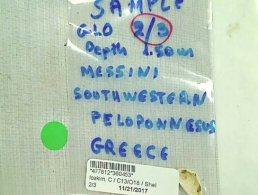 SAMPLE
GLO 2/3
Depth 2.50m
MESSINI
SOUTHWESTERN
PELOPONNESUS
GREECE
*477812*360453*
Ioakim. C / C13/O18 / Shel
2/3 11/21/2017